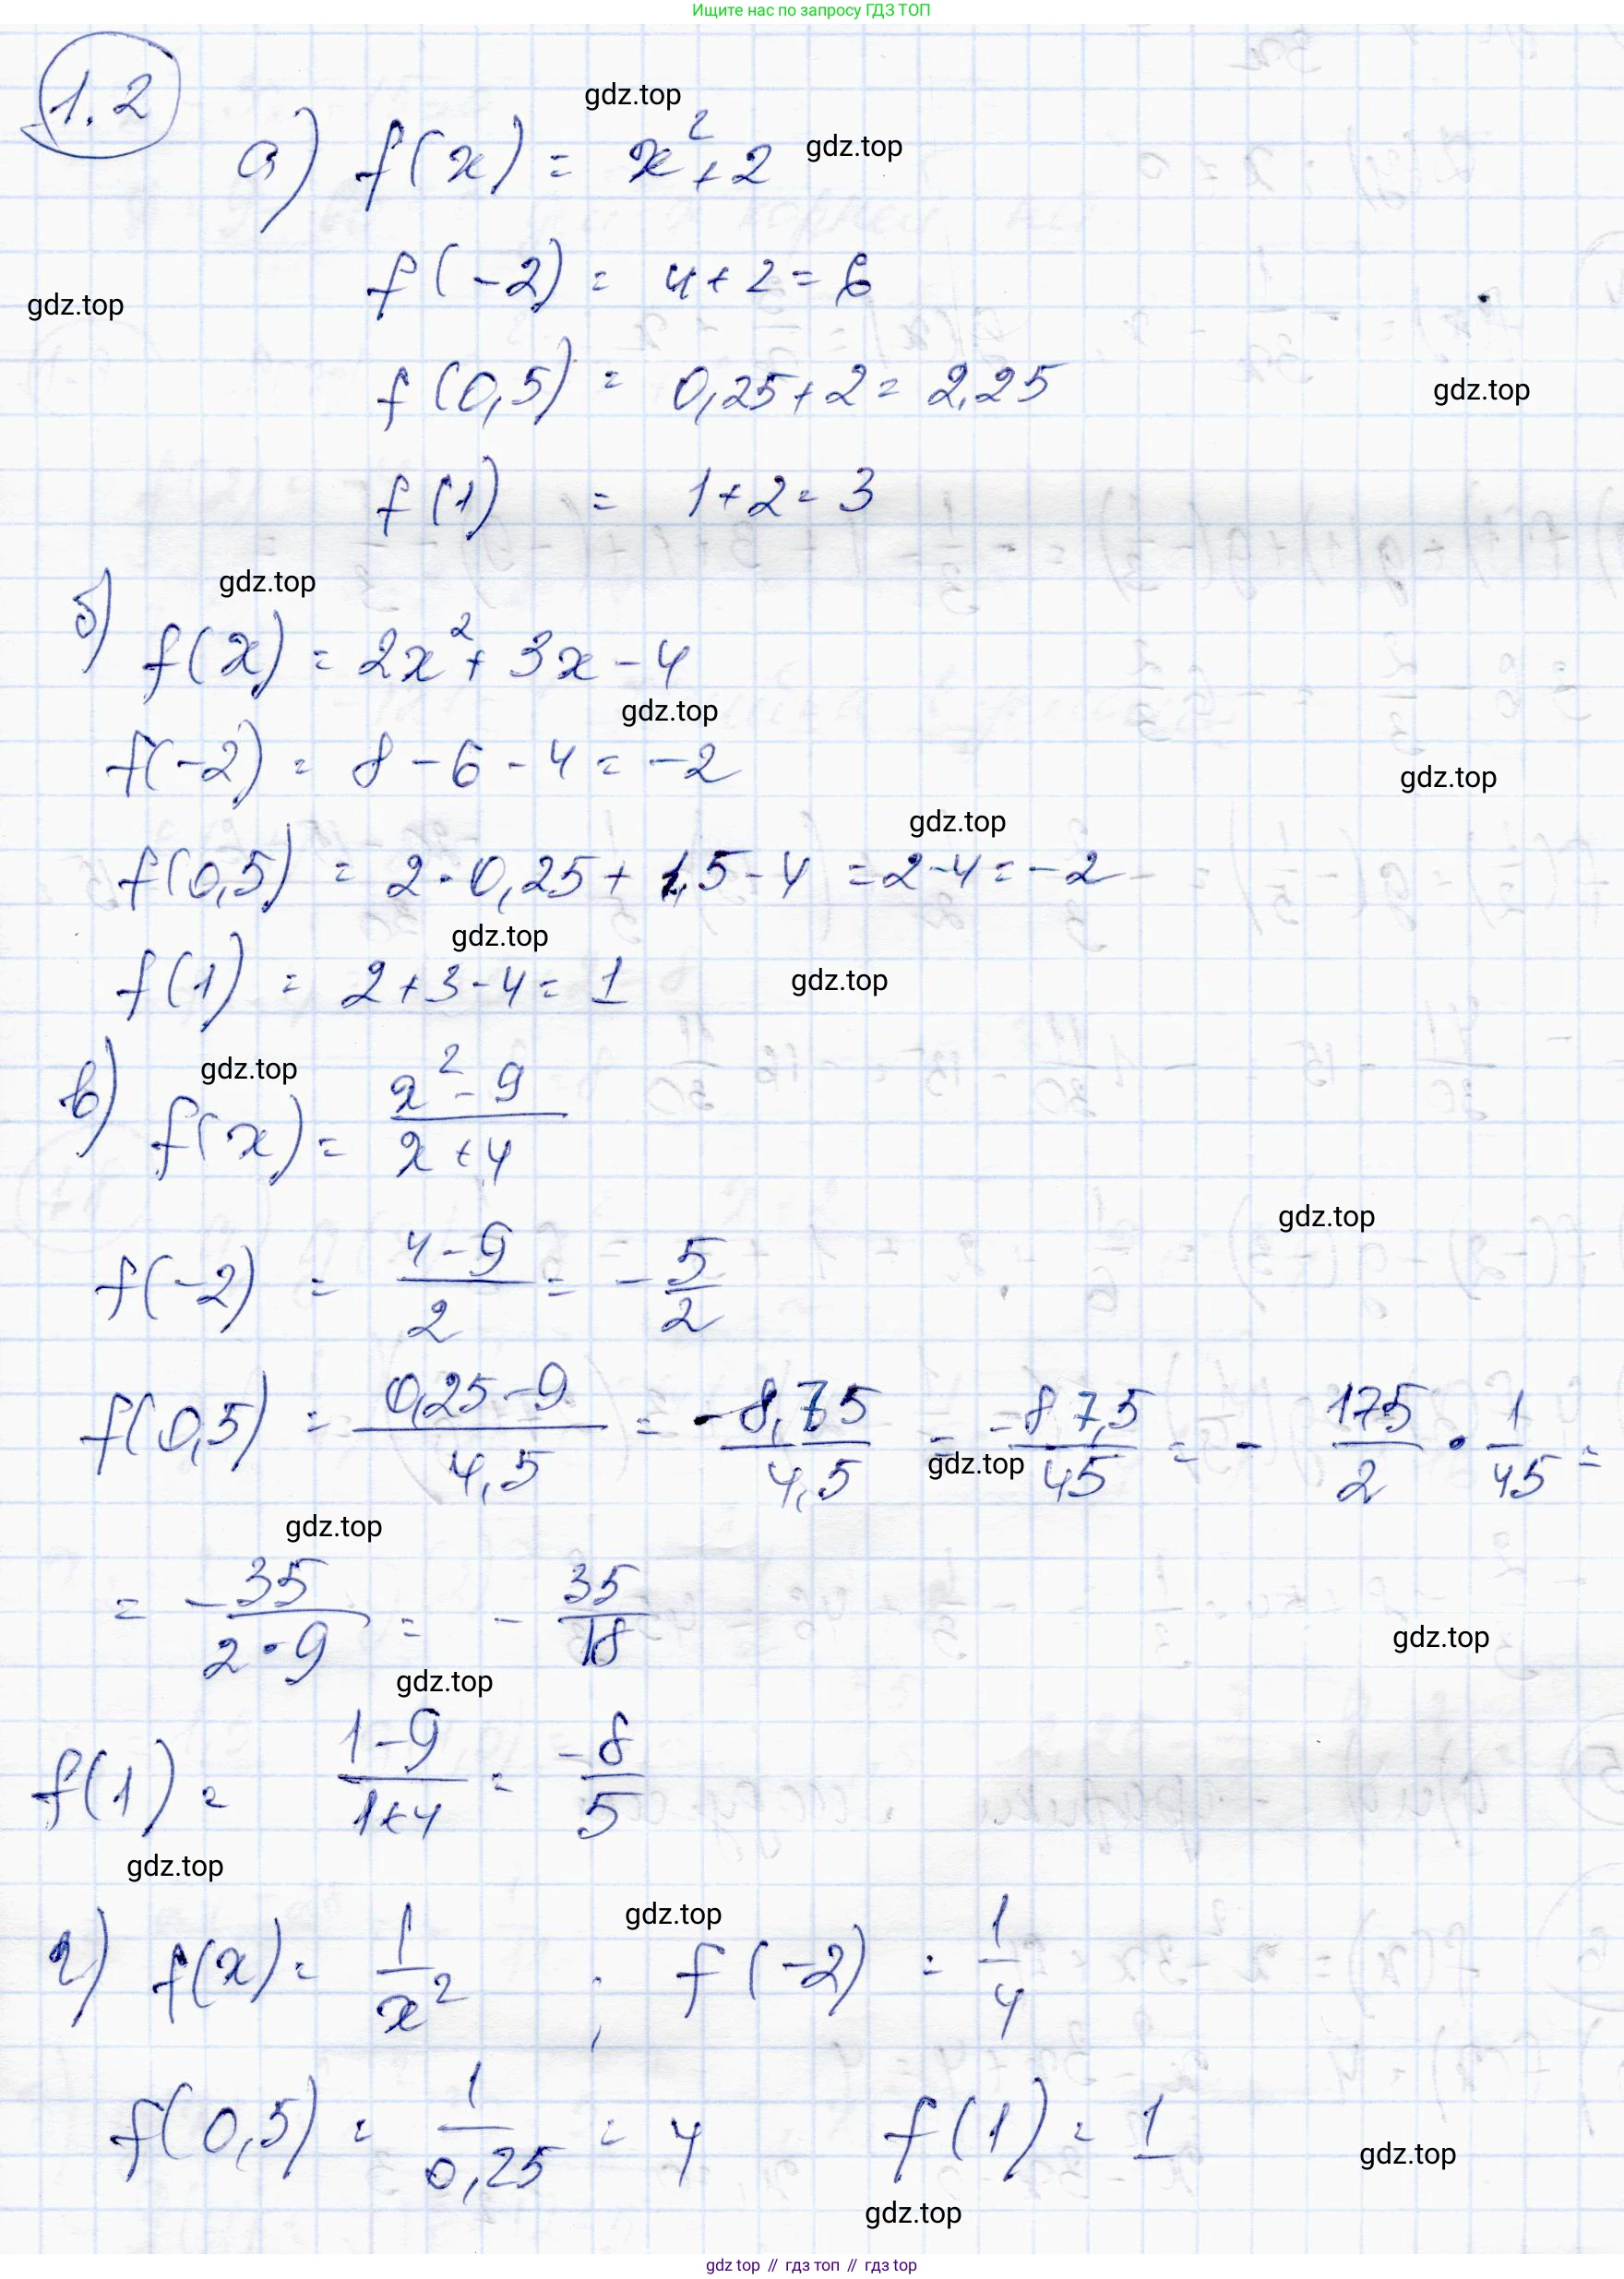 Ищите нас по запросу ГДЗ ТОП
1.2
gdz.top
а) f(x) = x² + 2
gdz.top
f(-2) = 4 + 2 = 6
gdz.top
f(0,5) = 0,25 + 2 = 2,25
gdz.top
f(1) = 1 + 2 = 3
gdz.top
б) f(x) = 2x² + 3x - 4
gdz.top
f(-2) = 8 - 6 - 4 = -2
gdz.top
gdz.top
f(0,5) = 2·0,25 + 1,5 - 4 = 2 - 4 = -2
gdz.top
f(1) = 2 + 3 - 4 = 1
gdz.top
gdz.top
в) f(x) = (x² - 9)/(x + 4)
gdz.top
f(-2) = (4 - 9)/2 = -5/2
f(0,5) = (0,25 - 9)/4,5 = -8,75/4,5 = -87,5/45 = - 175/2 · 1/45 =
gdz.top
gdz.top
= -35/(2·9) = - 35/18
gdz.top
gdz.top
f(1) = (1 - 9)/(1 + 4) = -8/5
gdz.top
gdz.top
г) f(x) = 1/x² ; f(-2) = 1/4
f(0,5) = 1/0,25 = 4 f(1) = 1
gdz.top
gdz.top
gdz top // гдз топ // гдз top